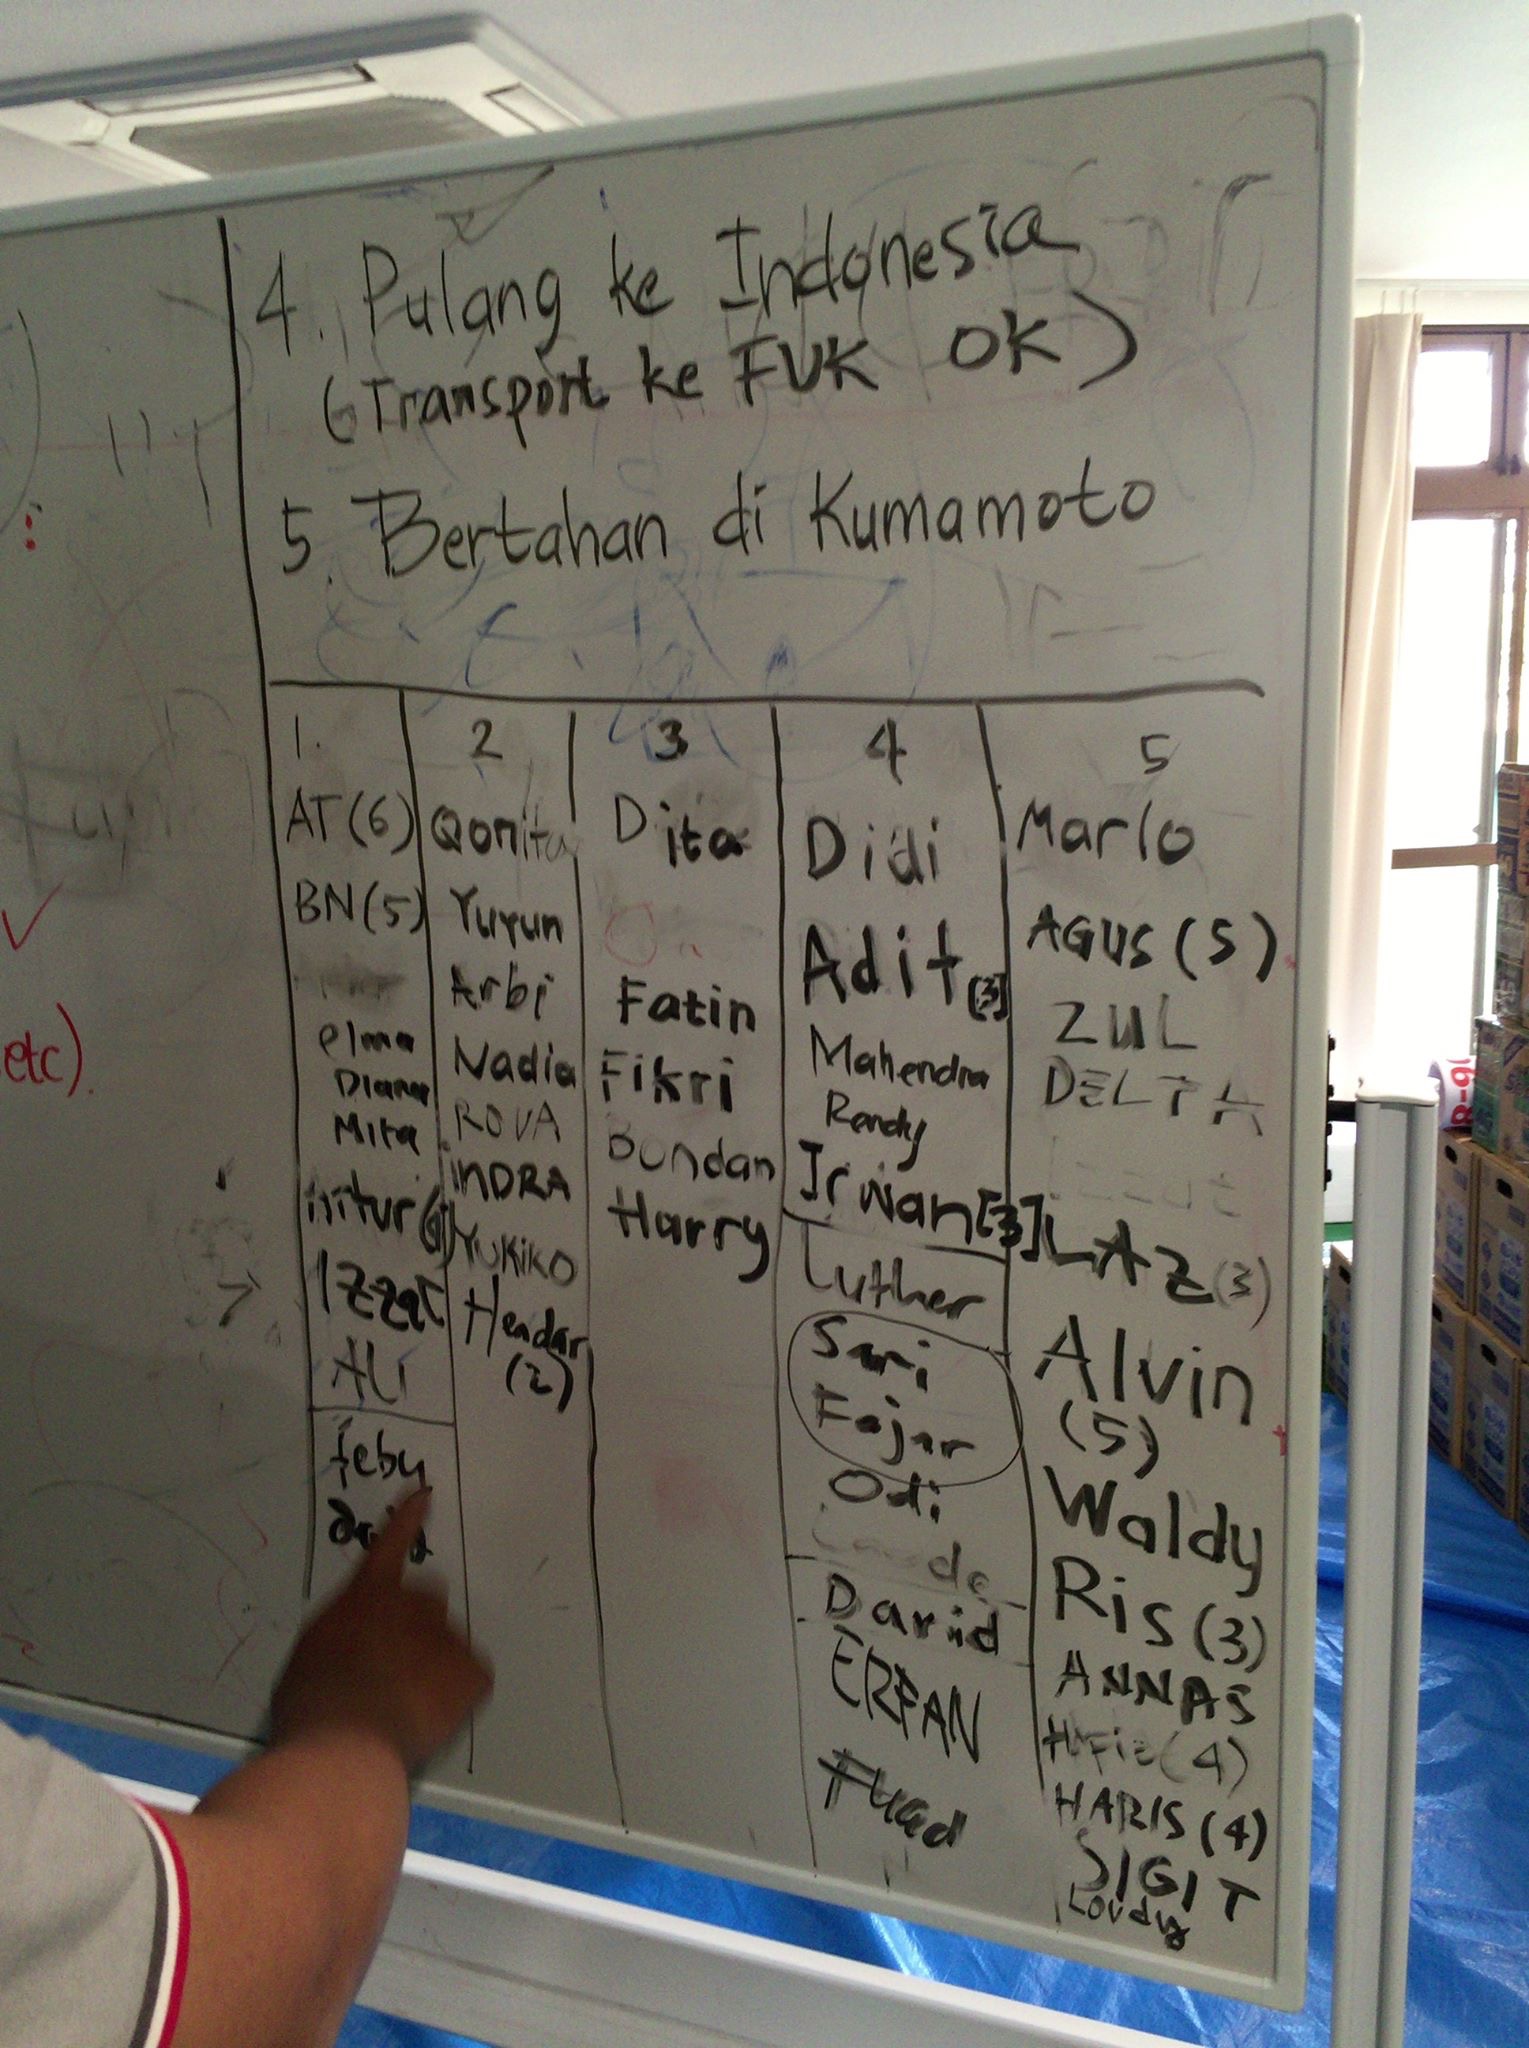 4. Pulang ke Indonesia
(Transport ke FUK OK)
5. Bertahan di Kumamoto
etc).
1.
AT (6)
BN (5)
elma
Diana
Mita
Izzat
ALI
feby
2
Qonita
Yuyun
Arbi
Nadia
ROVA
INDRA
YUKIKO
Hendar
(2)
3
Dita
Fatin
Fikri
Bondan
Harry
4
Didi
Adit [3]
Mahendra
Randy
Irwan [3]
Luther
Sari
Fajar
Odi
David
ERFAN
Fuad
5
Marlo
AGUS (5)
ZUL
DELTA
LAZ (3)
Alvin
(5)
Waldy
Ris (3)
ANNAS
Hafiz (4)
HARIS (4)
SIGIT